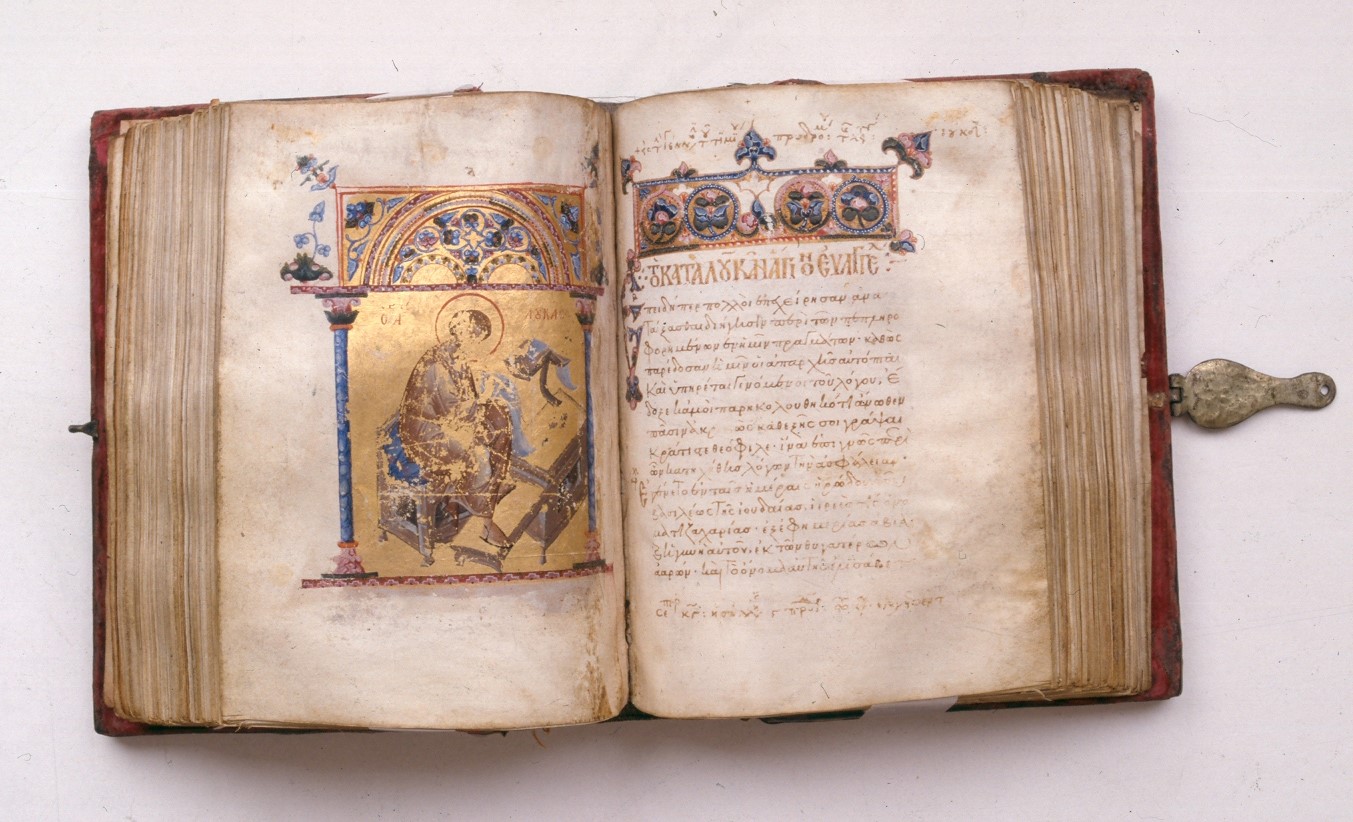 Ο Α ΛΟΥΚΑΣ
ΤΟ ΚΑΤΑ ΛΟΥΚΑΝ ΑΓΙΟΝ ΕΥΑΓΓΕΛ
Ἐπειδήπερ πολλοὶ ἐπεχείρησαν ἀνα
τάξασθαι διήγησιν περὶ τῶν πεπληρο
φορημένων ἐν ἡμῖν πραγμάτων· καθὼς
παρέδοσαν ἡμῖν οἱ ἀπαρχῆς αὐτόπται
καὶ ὑπηρέται γενόμενοι τοῦ λόγου, ἔ
δοξε κἀμοὶ παρηκολουθηκότι ἄνωθεν
πᾶσιν ἀκ ῶς καθεξῆς σοι γράψαι
κράτιστε θεόφιλε· ἵνα ἐπιγνῶς περὶ
ὧν κατηχήθης λόγων τὴν ἀσφάλειαν·
Ἐγένετο ἐν ταῖς ἡμέραις ἡρώδου τοῦ
βασιλέως τῆς ἰουδαίας, ἱερεύς τις ὀνό
ματι ζαχαρίας· ἐξ ἐφημερίας ἀβιά·
καὶ ἡ γυνὴ αὐτοῦ, ἐκ τῶν θυγατέρων
ἀαρών· καὶ τὸ ὄνομα αὐτῆς ἐλισάβετ